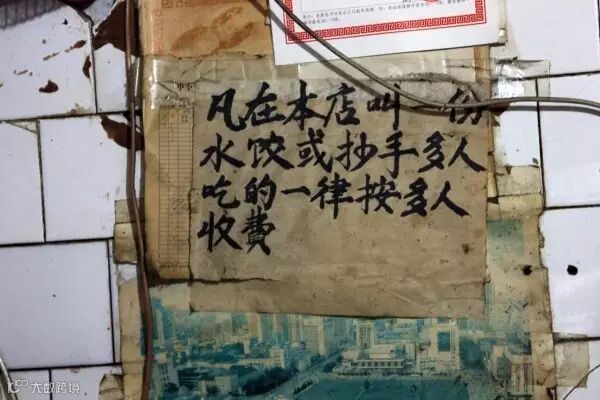 凡在本店叫一份
水饺或抄手多人
吃的一律按多人
收費
大数跨境